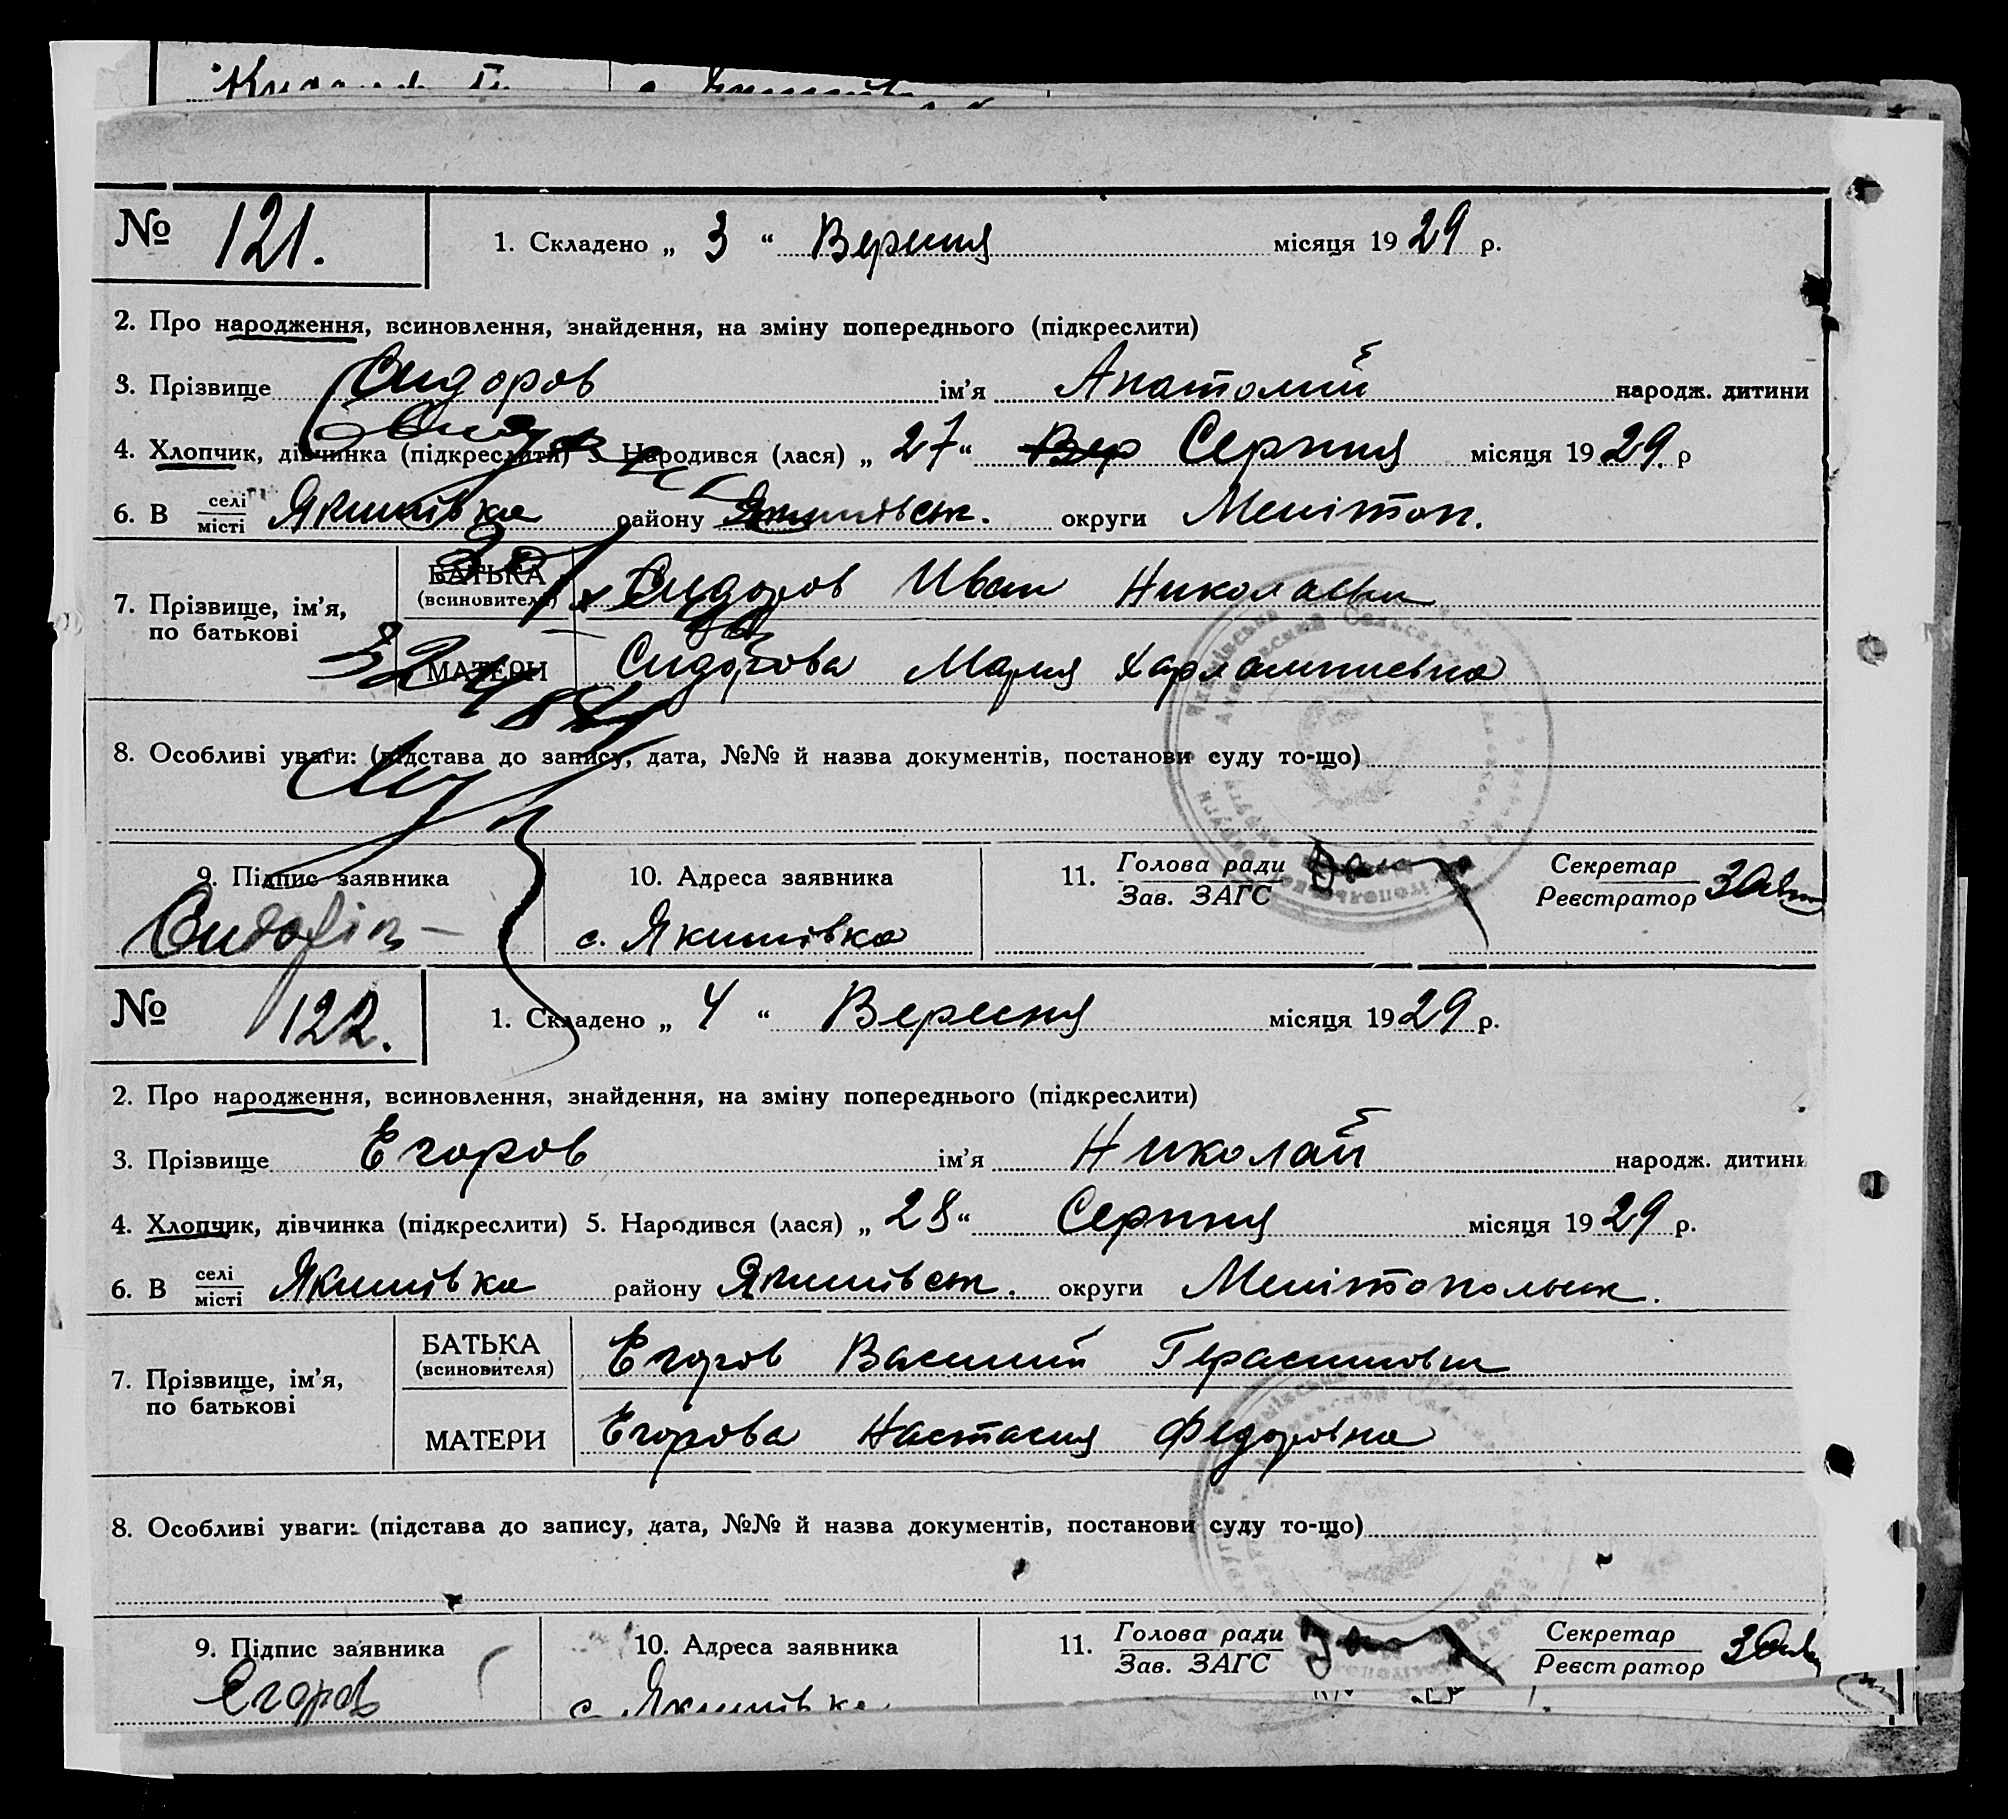 № 121. 1. Складено „ 3 “ Вересня місяця 1929 р.
2. Про народження, всиновлення, знайдення, на зміну попереднього (підкреслити)
3. Прізвище Сидоров ім'я Анатолий народж. дитини
4. Хлопчик, дівчинка (підкреслити) 5. Народився (лася) „ 27“ Вер Серпня місяця 1929. р
6. В селі/місті Якимівка району Якимівськ. округи Мелітоп.
7. Прізвище, ім'я, по батькові
БАТЬКА (всиновителя) Сидоров Иван Николаевич
МАТЕРИ Сидорова Мария Харлампиевна
8. Особливі уваги: (підстава до запису, дата, №№ й назва документів, постанови суду то-що)
9. Підпис заявника 10. Адреса заявника 11. Голова ради / Зав. ЗАГС Секретар / Реєстратор
с. Якимівка
№ 122. 1. Складено „ 4 “ Вересня місяця 1929 р.
2. Про народження, всиновлення, знайдення, на зміну попереднього (підкреслити)
3. Прізвище Егоров ім'я Николай народж. дитини
4. Хлопчик, дівчинка (підкреслити) 5. Народився (лася) „ 28“ Серпня місяця 1929 р.
6. В селі/місті Якимівка району Якимівськ. округи Мелітопольськ.
7. Прізвище, ім'я, по батькові
БАТЬКА (всиновителя) Егоров Василий Герасимович
МАТЕРИ Егорова Настасия Федоровна
8. Особливі уваги: (підстава до запису, дата, №№ й назва документів, постанови суду то-що)
9. Підпис заявника 10. Адреса заявника 11. Голова ради / Зав. ЗАГС Секретар / Реєстратор
Егоров с. Якимівка